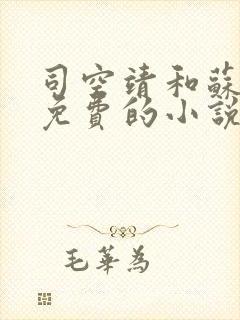 司空靖和蘇
免費的小說
毛華為